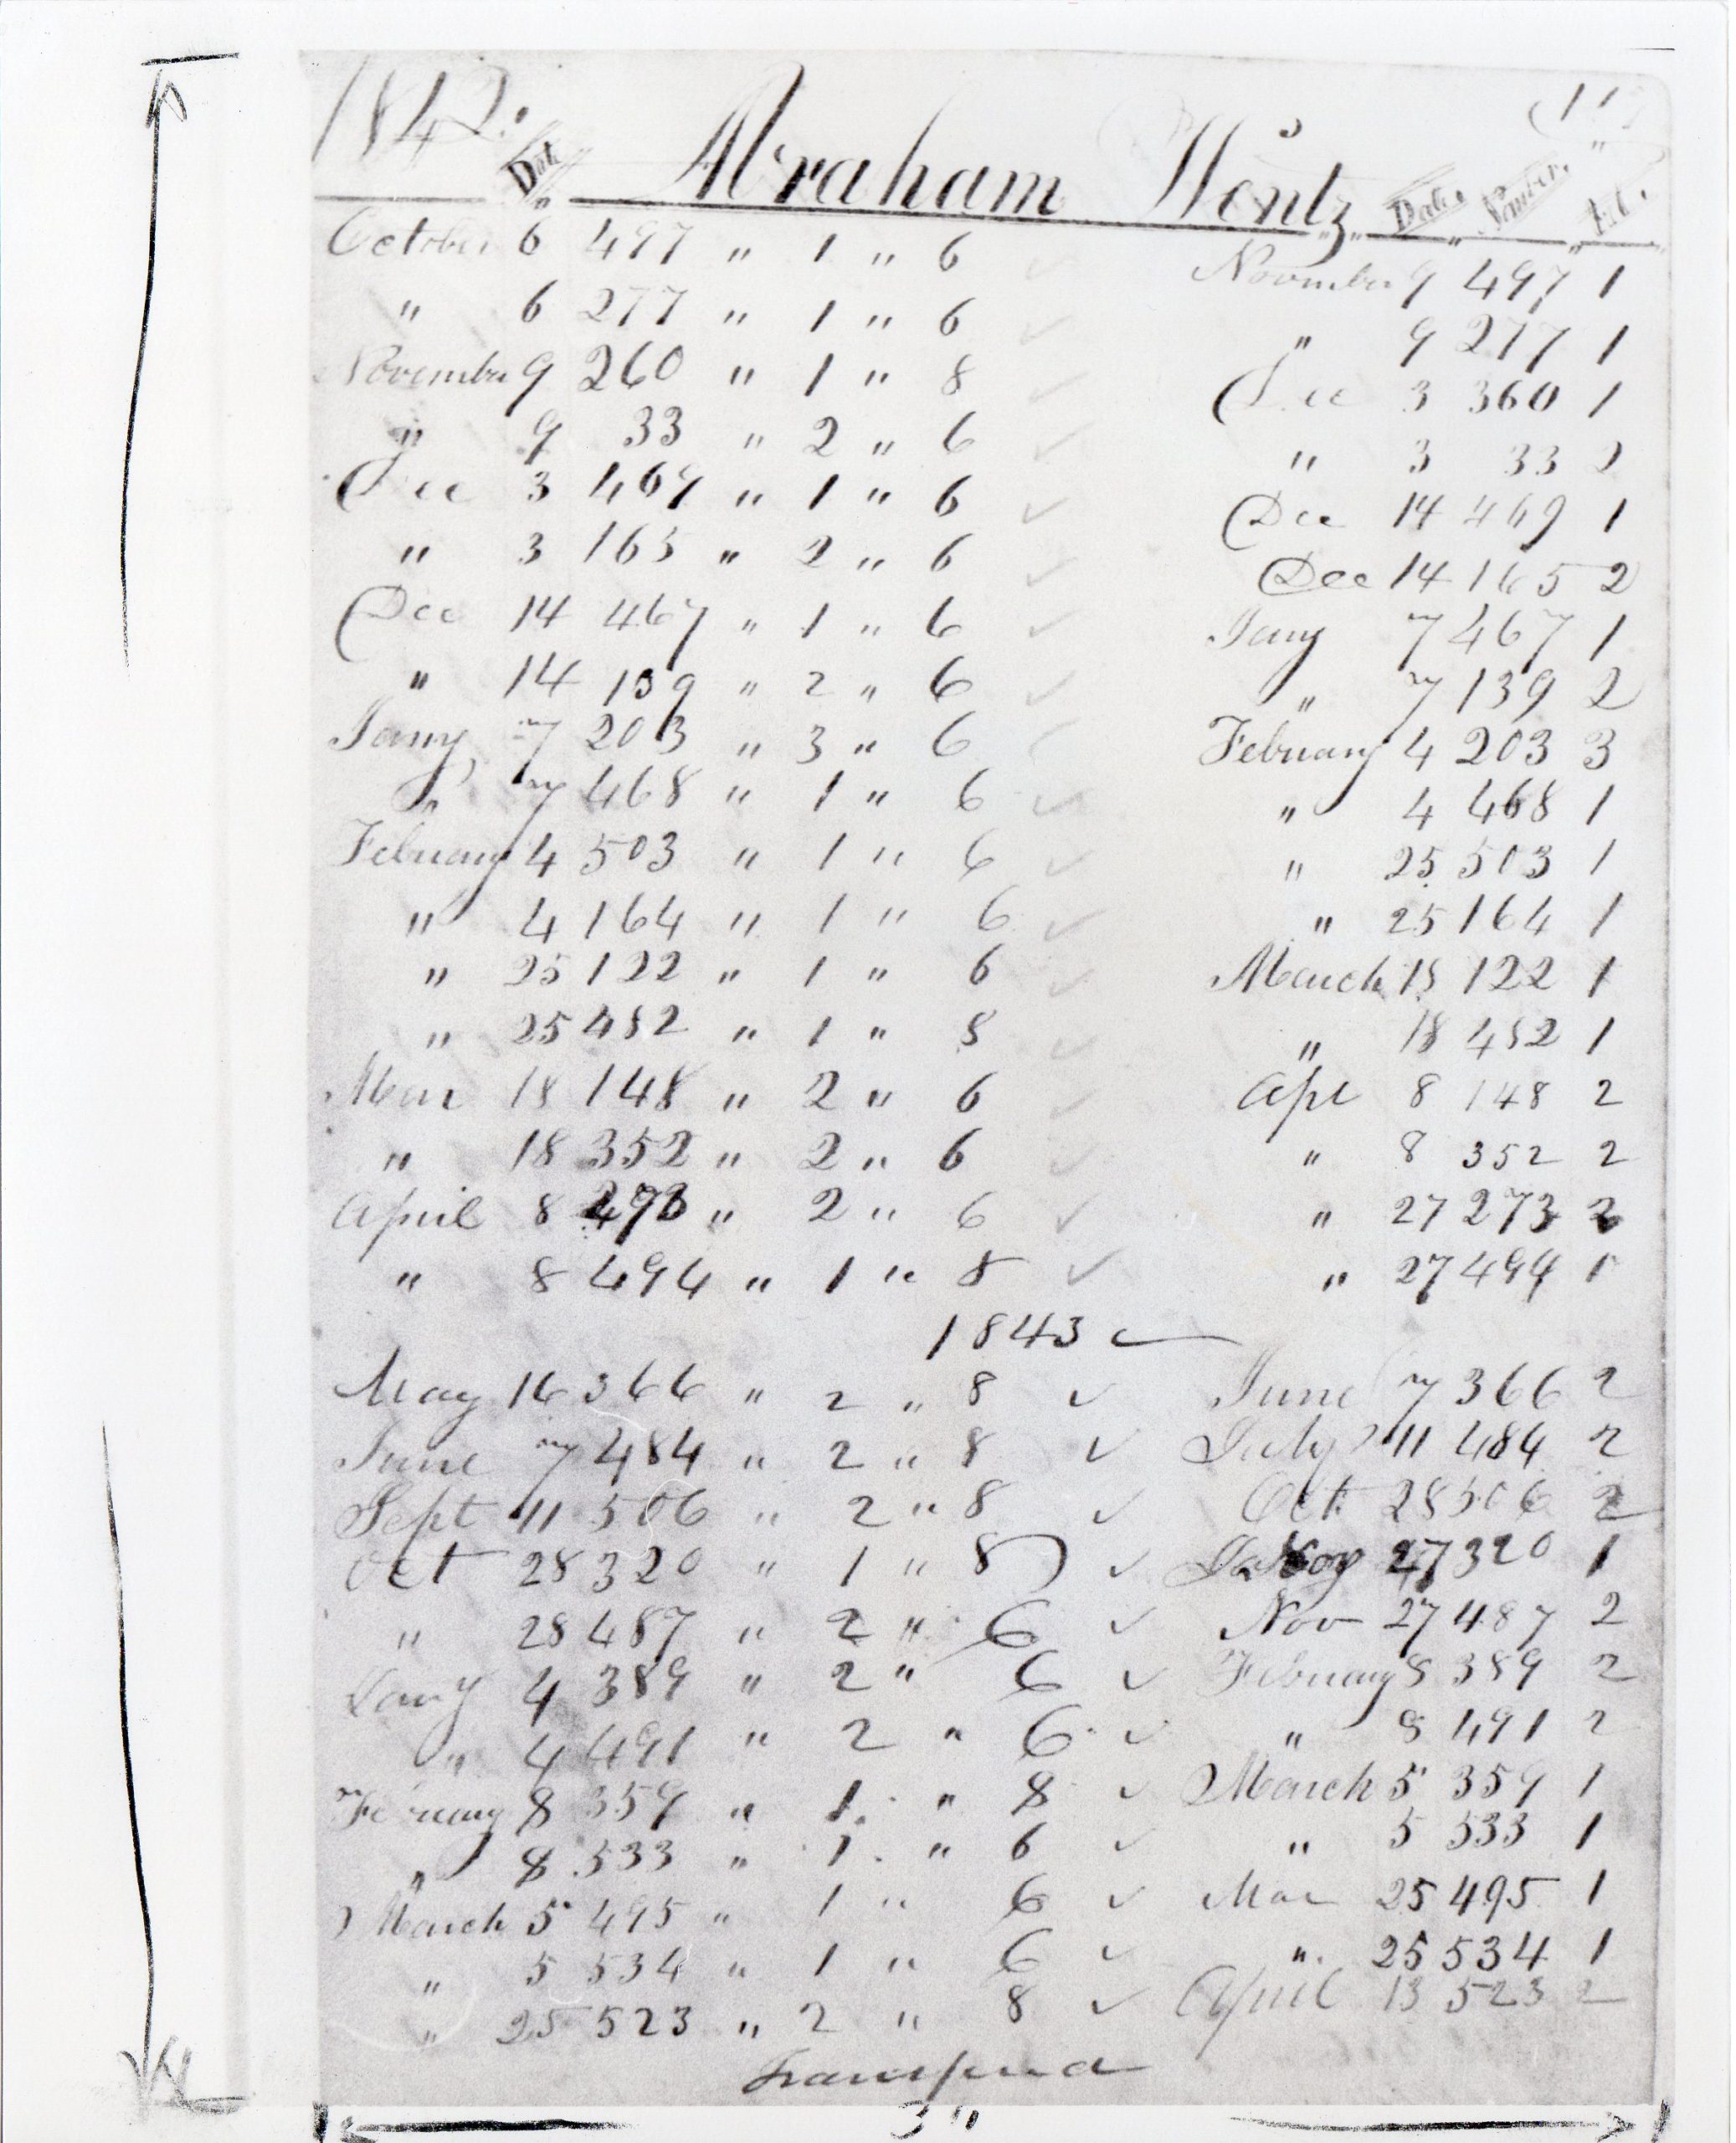 1842.
Dat. Abraham Wentz Date. Number. Vol.
October 6 497 " 1 " 6 November 9 497 1
" 6 277 " 1 " 6 " 9 277 1
November 9 260 " 1 " 8 Dec 3 360 1
" 9 33 " 2 " 6 " 3 33 2
Dec 3 469 " 1 " 6 Dec 14 469 1
" 3 165 " 2 " 6 Dec 14 165 2
Dec 14 467 " 1 " 6 Jany 7 467 1
" 14 139 " 2 " 6 " 7 139 2
Jany 7 203 " 3 " 6 February 4 203 3
" 7 468 " 1 " 6 " 4 468 1
February 4 503 " 1 " 6 " 25 503 1
" 4 164 " 1 " 6 " 25 164 1
" 25 122 " 1 " 6 March 18 122 1
" 25 482 " 1 " 8 " 18 482 1
Mar 18 148 " 2 " 6 Apl 8 148 2
" 18 352 " 2 " 6 " 8 352 2
April 8 273 " 2 " 6 " 27 273 2
" 8 494 " 1 " 8 " 27 494 1
1843
May 16 366 " 2 " 8 June 7 366 2
June 7 484 " 2 " 8 July 11 484 2
Sept 11 506 " 2 " 8 Oct 28 506 2
Oct 28 320 " 1 " 8 27 320 1
" 28 487 " 2 " 6 Nov 27 487 2
Jany 4 389 " 2 " 6 February 8 389 2
" 4 491 " 2 " 6 " 8 491 2
February 8 359 " 1 " 8 March 5 359 1
" 8 533 " 1 " 6 " 5 533 1
March 5 495 " 1 " 6 Mar 25 495 1
" 5 534 " 1 " 6 " 25 534 1
" 25 523 " 2 " 8 April 13 523 2
3"